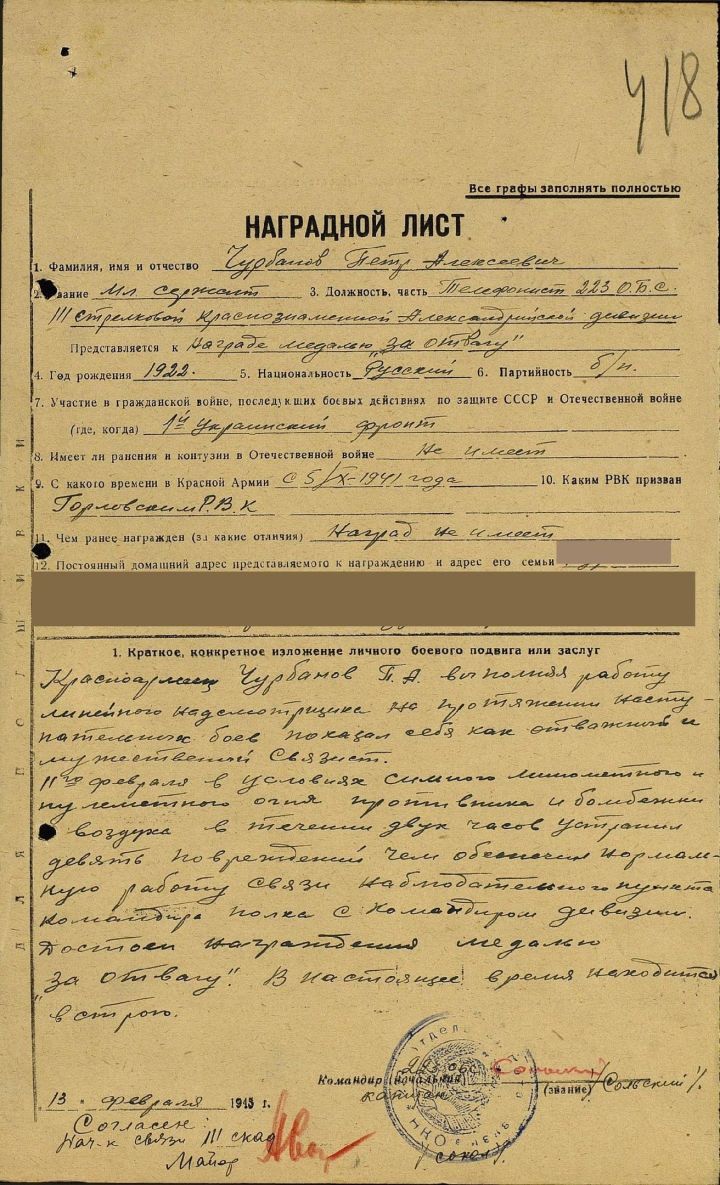 418
Все графы заполнять полностью
НАГРАДНОЙ ЛИСТ
1. Фамилия, имя и отчество Чурбанов Петр Алексеевич
2. Звание Мл. сержант 3. Должность, часть Телефонист 223 О.Б.С.
111 стрелковой Краснознаменной Александрийской дивизии
Представляется к Награде медалью "За отвагу"
4. Год рождения 1922. 5. Национальность Русский 6. Партийность б/п.
7. Участие в гражданской войне, последующих боевых действиях по защите СССР и Отечественной войне
(где, когда) 1й Украинский фронт
8. Имеет ли ранения и контузии в Отечественной войне Не имеет
9. С какого времени в Красной Армии с 5/X-1941 года 10. Каким РВК призван
Горловским Р.В.К
11. Чем ранее награжден (за какие отличия) Наград не имеет
12. Постоянный домашний адрес представляемого к награждению и адрес его семьи
1. Краткое, конкретное изложение личного боевого подвига или заслуг
Красноармеец Чурбанов П.А. выполняя работу
линейного надсмотрщика на протяжении насту-
пательных боев показал себя как отважный и
мужественный связист.
11го февраля в условиях сильного минометного и
пулеметного огня противника и бомбежки
воздуха в течении двух часов устранил
девять повреждений чем обеспечил нормаль-
ную работу связи наблюдательного пункта
командира полка с командиром дивизии.
Достоен награждения медалью
"за отвагу". В настоящее время находится
в строю.
Командир (начальник)
капитан (звание) /Сольский/
13 " февраля 1945 г.
Согласен:
Нач-к связи 111 скад
Майор /Сокол/
ДЛЯ ПОДШИВКИ